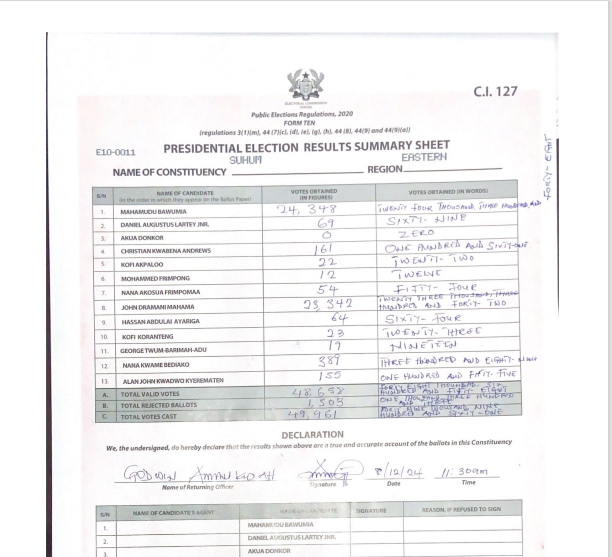 ELECTORAL COMMISSION
C.I. 127
Public Elections Regulations, 2020
FORM TEN
(regulations 3(1)(m), 44 (7)(c), (d), (e), (g), (h), 44 (8), 44(9) and 44(9)(a))
E10-0011 PRESIDENTIAL ELECTION RESULTS SUMMARY SHEET
NAME OF CONSTITUENCY SUHUM REGION EASTERN
S/N NAME OF CANDIDATE (in the order in which they appear on the Ballot Paper) VOTES OBTAINED (IN FIGURES) VOTES OBTAINED (IN WORDS)
1. MAHAMUDU BAWUMIA 24,348 TWENTY FOUR THOUSAND, THREE HUNDRED AND FORTY-EIGHT
2. DANIEL AUGUSTUS LARTEY JNR. 69 SIXTY-NINE
3. AKUA DONKOR 0 ZERO
4. CHRISTIAN KWABENA ANDREWS 161 ONE HUNDRED AND SIXTY-ONE
5. KOFI AKPALOO 22 TWENTY-TWO
6. MOHAMMED FRIMPONG 12 TWELVE
7. NANA AKOSUA FRIMPOMAA 54 FIFTY-FOUR
8. JOHN DRAMANI MAHAMA 23,342 TWENTY THREE THOUSAND, THREE HUNDRED AND FORTY-TWO
9. HASSAN ABDULAI AYARIGA 64 SIXTY-FOUR
10. KOFI KORANTENG 23 TWENTY-THREE
11. GEORGE TWUM-BARIMAH-ADU 19 NINETEEN
12. NANA KWAME BEDIAKO 389 THREE HUNDRED AND EIGHTY-NINE
13. ALAN JOHN KWADWO KYEREMATEN 155 ONE HUNDRED AND FIFTY-FIVE
A. TOTAL VALID VOTES 48,658 FORTY EIGHT THOUSAND, SIX HUNDRED AND FIFTY-EIGHT
B. TOTAL REJECTED BALLOTS 1,303 ONE THOUSAND, THREE HUNDRED AND THREE
C. TOTAL VOTES CAST 49,961 FORTY NINE THOUSAND, NINE HUNDRED AND SIXTY-ONE
DECLARATION
We, the undersigned, do hereby declare that the results shown above are a true and accurate account of the ballots in this Constituency
GODWIN 8/12/24 11:30am
Name of Returning Officer Signature Date Time
S/N NAME OF CANDIDATE'S AGENT NAME OF CANDIDATE SIGNATURE REASON, IF REFUSED TO SIGN
1. MAHAMUDU BAWUMIA
2. DANIEL AUGUSTUS LARTEY JNR.
3. AKUA DONKOR